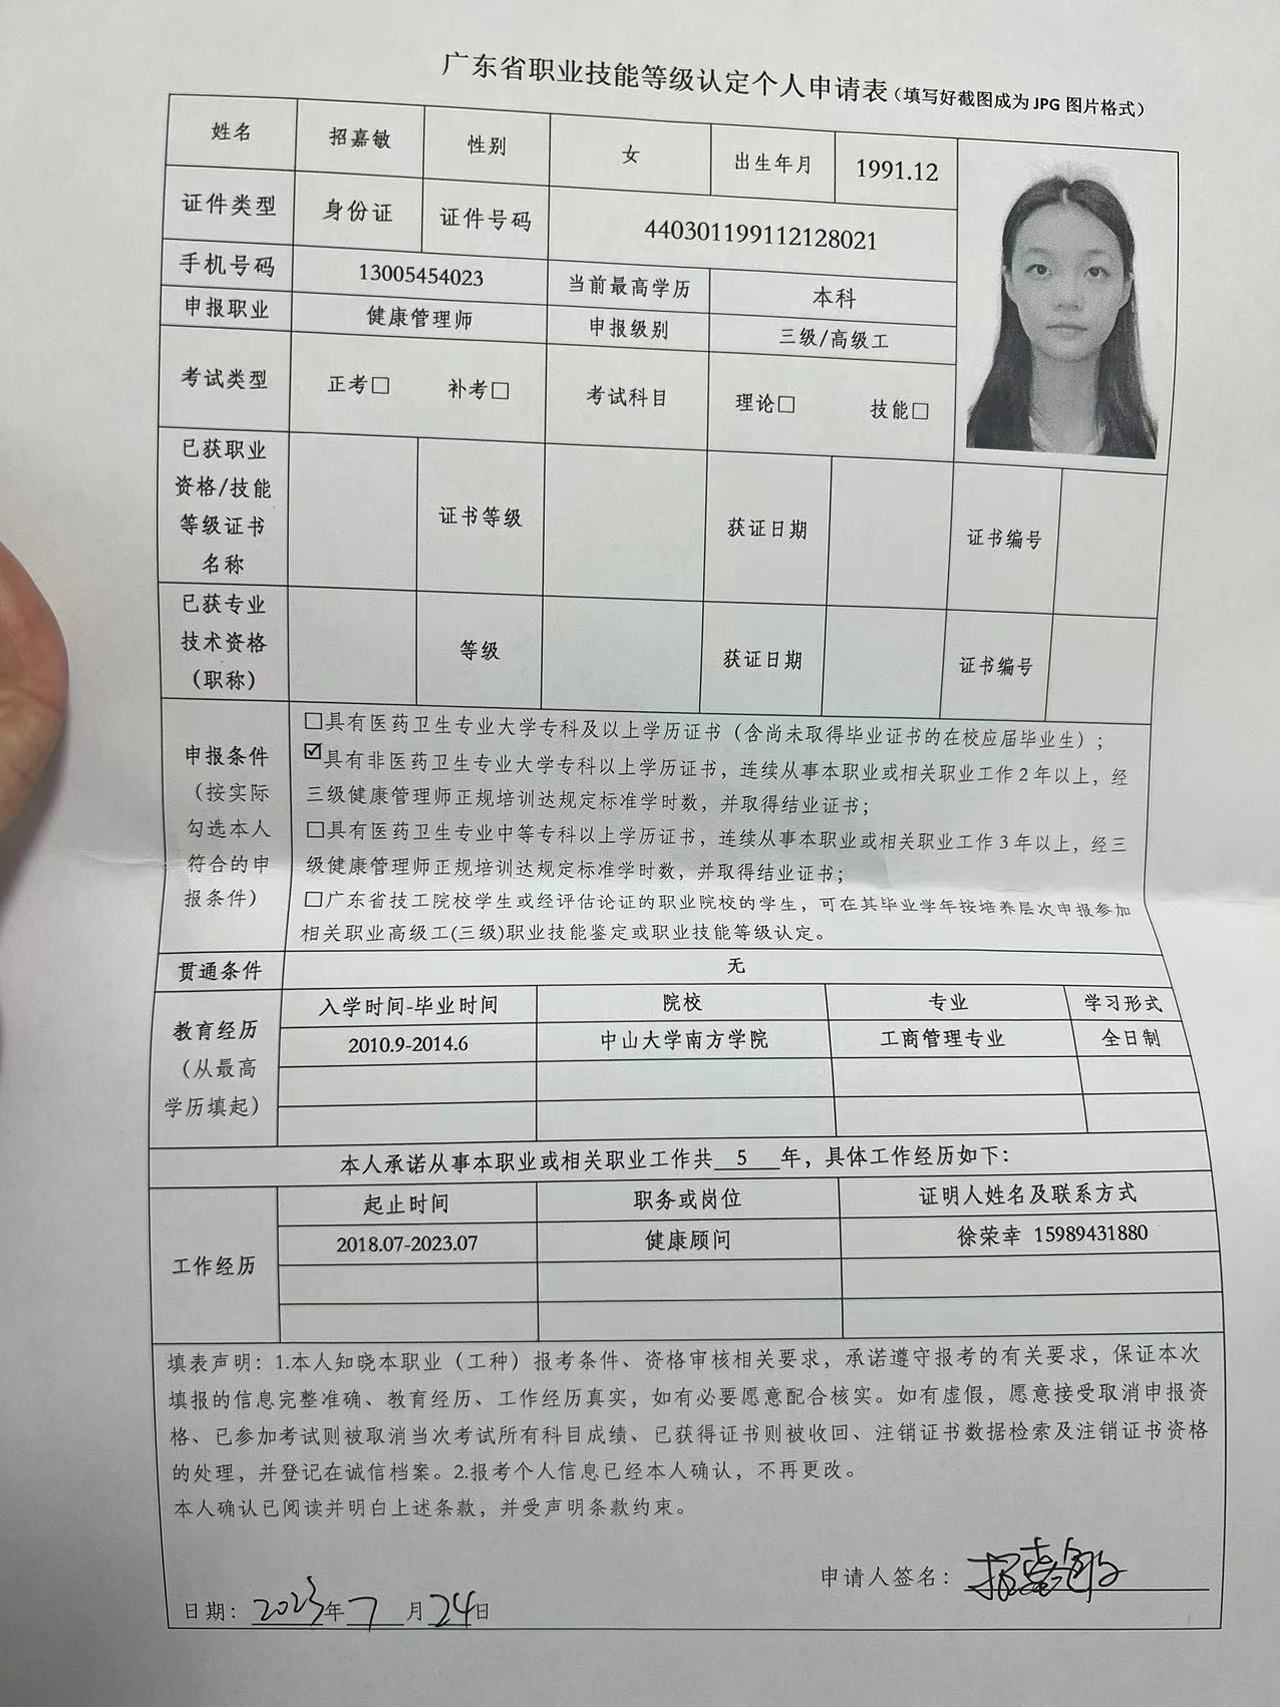 广东省职业技能等级认定个人申请表（填写好截图成为JPG图片格式）
姓名 招嘉敏 性别 女 出生年月 1991.12
证件类型 身份证 证件号码 440301199112128021
手机号码 13005454023 当前最高学历 本科
申报职业 健康管理师 申报级别 三级/高级工
考试类型 正考□ 补考□ 考试科目 理论□ 技能□
已获职业
资格/技能
等级证书
名称
证书等级 获证日期 证书编号
已获专业
技术资格
（职称）
等级 获证日期 证书编号
申报条件
（按实际
勾选本人
符合的申
报条件）
□具有医药卫生专业大学专科及以上学历证书（含尚未取得毕业证书的在校应届毕业生）；
☑具有非医药卫生专业大学专科以上学历证书，连续从事本职业或相关职业工作2年以上，经
三级健康管理师正规培训达规定标准学时数，并取得结业证书；
□具有医药卫生专业中等专科以上学历证书，连续从事本职业或相关职业工作3年以上，经三
级健康管理师正规培训达规定标准学时数，并取得结业证书；
□广东省技工院校学生或经评估论证的职业院校的学生，可在其毕业学年按培养层次申报参加
相关职业高级工(三级)职业技能鉴定或职业技能等级认定。
贯通条件 无
教育经历
（从最高
学历填起）
入学时间-毕业时间 院校 专业 学习形式
2010.9-2014.6 中山大学南方学院 工商管理专业 全日制
本人承诺从事本职业或相关职业工作共 5 年，具体工作经历如下：
工作经历
起止时间 职务或岗位 证明人姓名及联系方式
2018.07-2023.07 健康顾问 徐荣幸 15989431880
填表声明：1.本人知晓本职业（工种）报考条件、资格审核相关要求，承诺遵守报考的有关要求，保证本次
填报的信息完整准确、教育经历、工作经历真实，如有必要愿意配合核实。如有虚假，愿意接受取消申报资
格、已参加考试则被取消当次考试所有科目成绩、已获得证书则被收回、注销证书数据检索及注销证书资格
的处理，并登记在诚信档案。2.报考个人信息已经本人确认，不再更改。
本人确认已阅读并明白上述条款，并受声明条款约束。
申请人签名：招嘉敏
日期：2023年7月24日